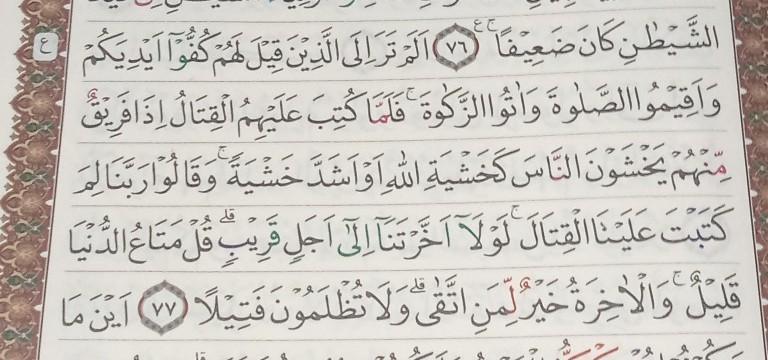 الشَّيْطٰنِ كَانَ ضَعِيْفًا ۚ ࣖ ﴿٧٦﴾ اَلَمْ تَرَ اِلَى الَّذِيْنَ قِيْلَ لَهُمْ كُفُّوْٓا اَيْدِيَكُمْ ع
وَاَقِيْمُوا الصَّلٰوةَ وَاٰتُوا الزَّكٰوةَۚ فَلَمَّا كُتِبَ عَلَيْهِمُ الْقِتَالُ اِذَا فَرِيْقٌ
مِّنْهُمْ يَخْشَوْنَ النَّاسَ كَخَشْيَةِ اللّٰهِ اَوْ اَشَدَّ خَشْيَةًۚ وَقَالُوْا رَبَّنَا لِمَ
كَتَبْتَ عَلَيْنَا الْقِتَالَۚ لَوْلَآ اَخَّرْتَنَآ اِلٰٓى اَجَلٍ قَرِيْبٍۗ قُلْ مَتَاعُ الدُّنْيَا
قَلِيْلٌۚ وَالْاٰخِرَةُ خَيْرٌ لِّمَنِ اتَّقٰىۗ وَلَا تُظْلَمُوْنَ فَتِيْلًا ﴿٧٧﴾ اَيْنَ مَا